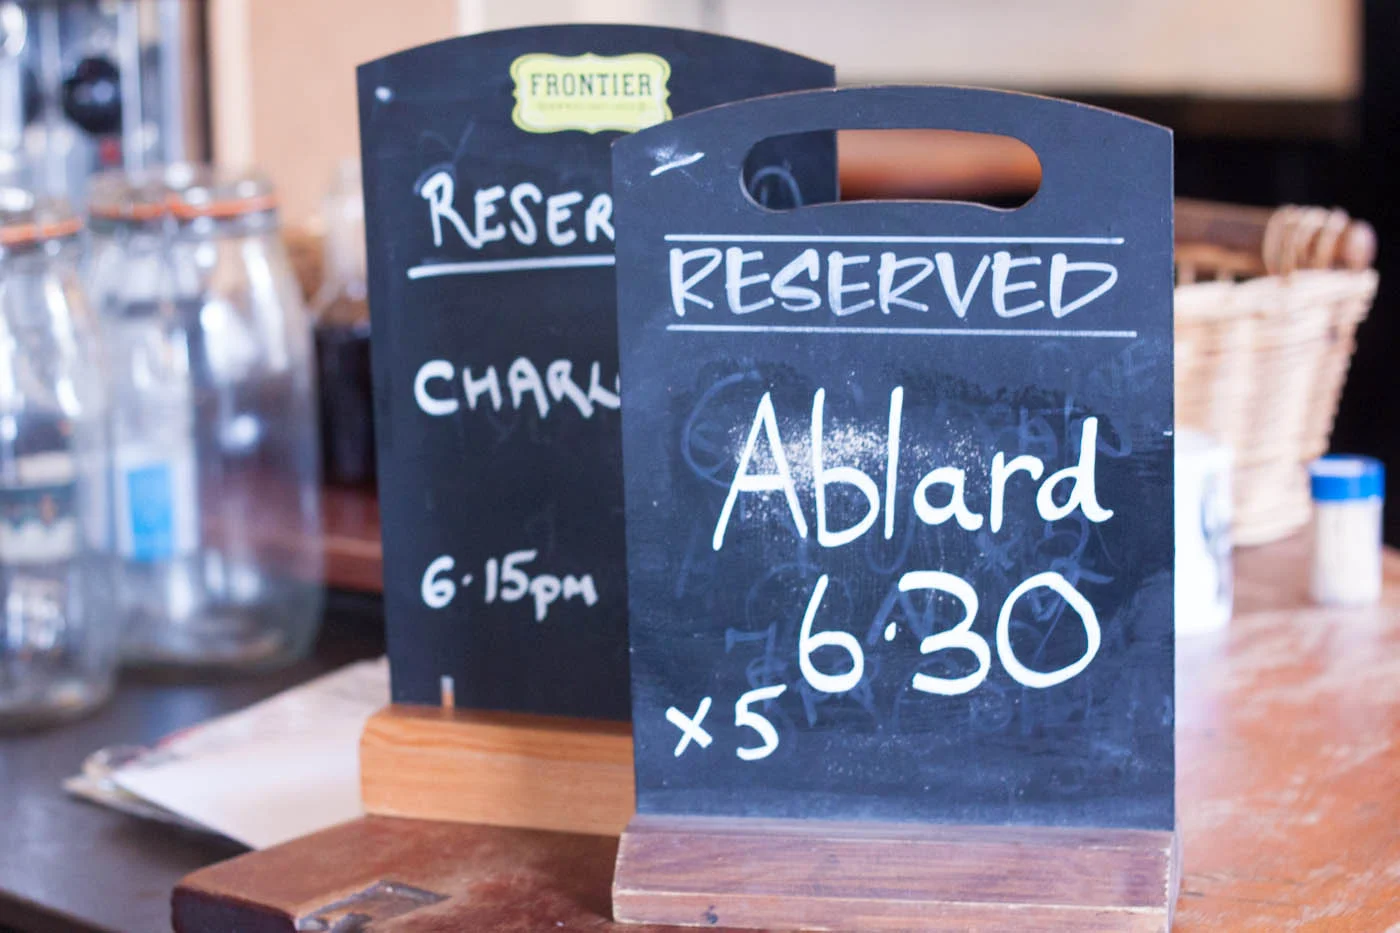 FRONTIER
RESER
CHARL
6.15pm
RESERVED
Ablard
6.30
x5